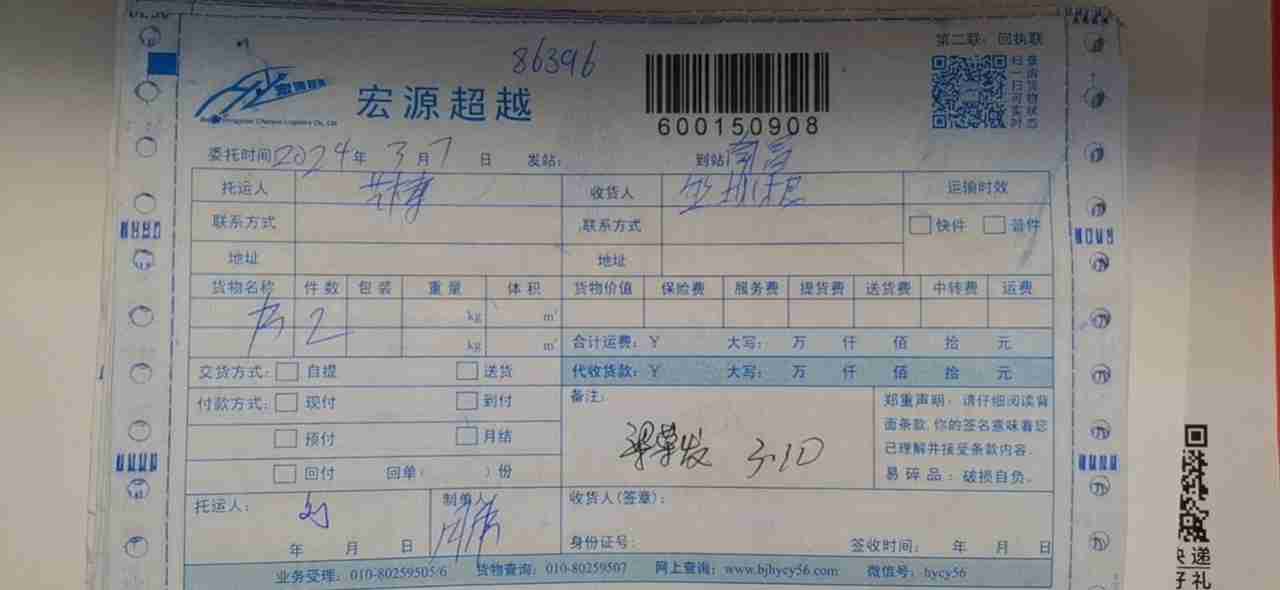 86396
第二联：回执联
宏源超越
600150908
扫一扫可实时
查询货物状态
委托时间2024年 3月7日 发站： 到站：南昌
托运人 收货人 运输时效
联系方式 联系方式 快件 普件
地址 地址
货物名称 件数 包装 重量 体积 货物价值 保险费 服务费 提货费 送货费 中转费 运费
2 kg m³
kg m³ 合计运费：￥ 大写： 万 仟 佰 拾 元
交货方式： 自提 送货 代收货款：￥ 大写： 万 仟 佰 拾 元
付款方式： 现付 到付 备注： 郑重声明：请仔细阅读背
面条款,你的签名意味着您
预付 月结 梁荣发 3.10 已理解并接受条款内容.
回付 回单（ ）份 易碎品：破损自负.
托运人： 刘 制单人 收货人(签章)：
年 月 日 身份证号： 签收时间： 年 月 日
业务受理：010-80259505/6 货物查询：010-80259507 网上查询：www.bjhycy56.com 微信号：hycy56
快递
好礼